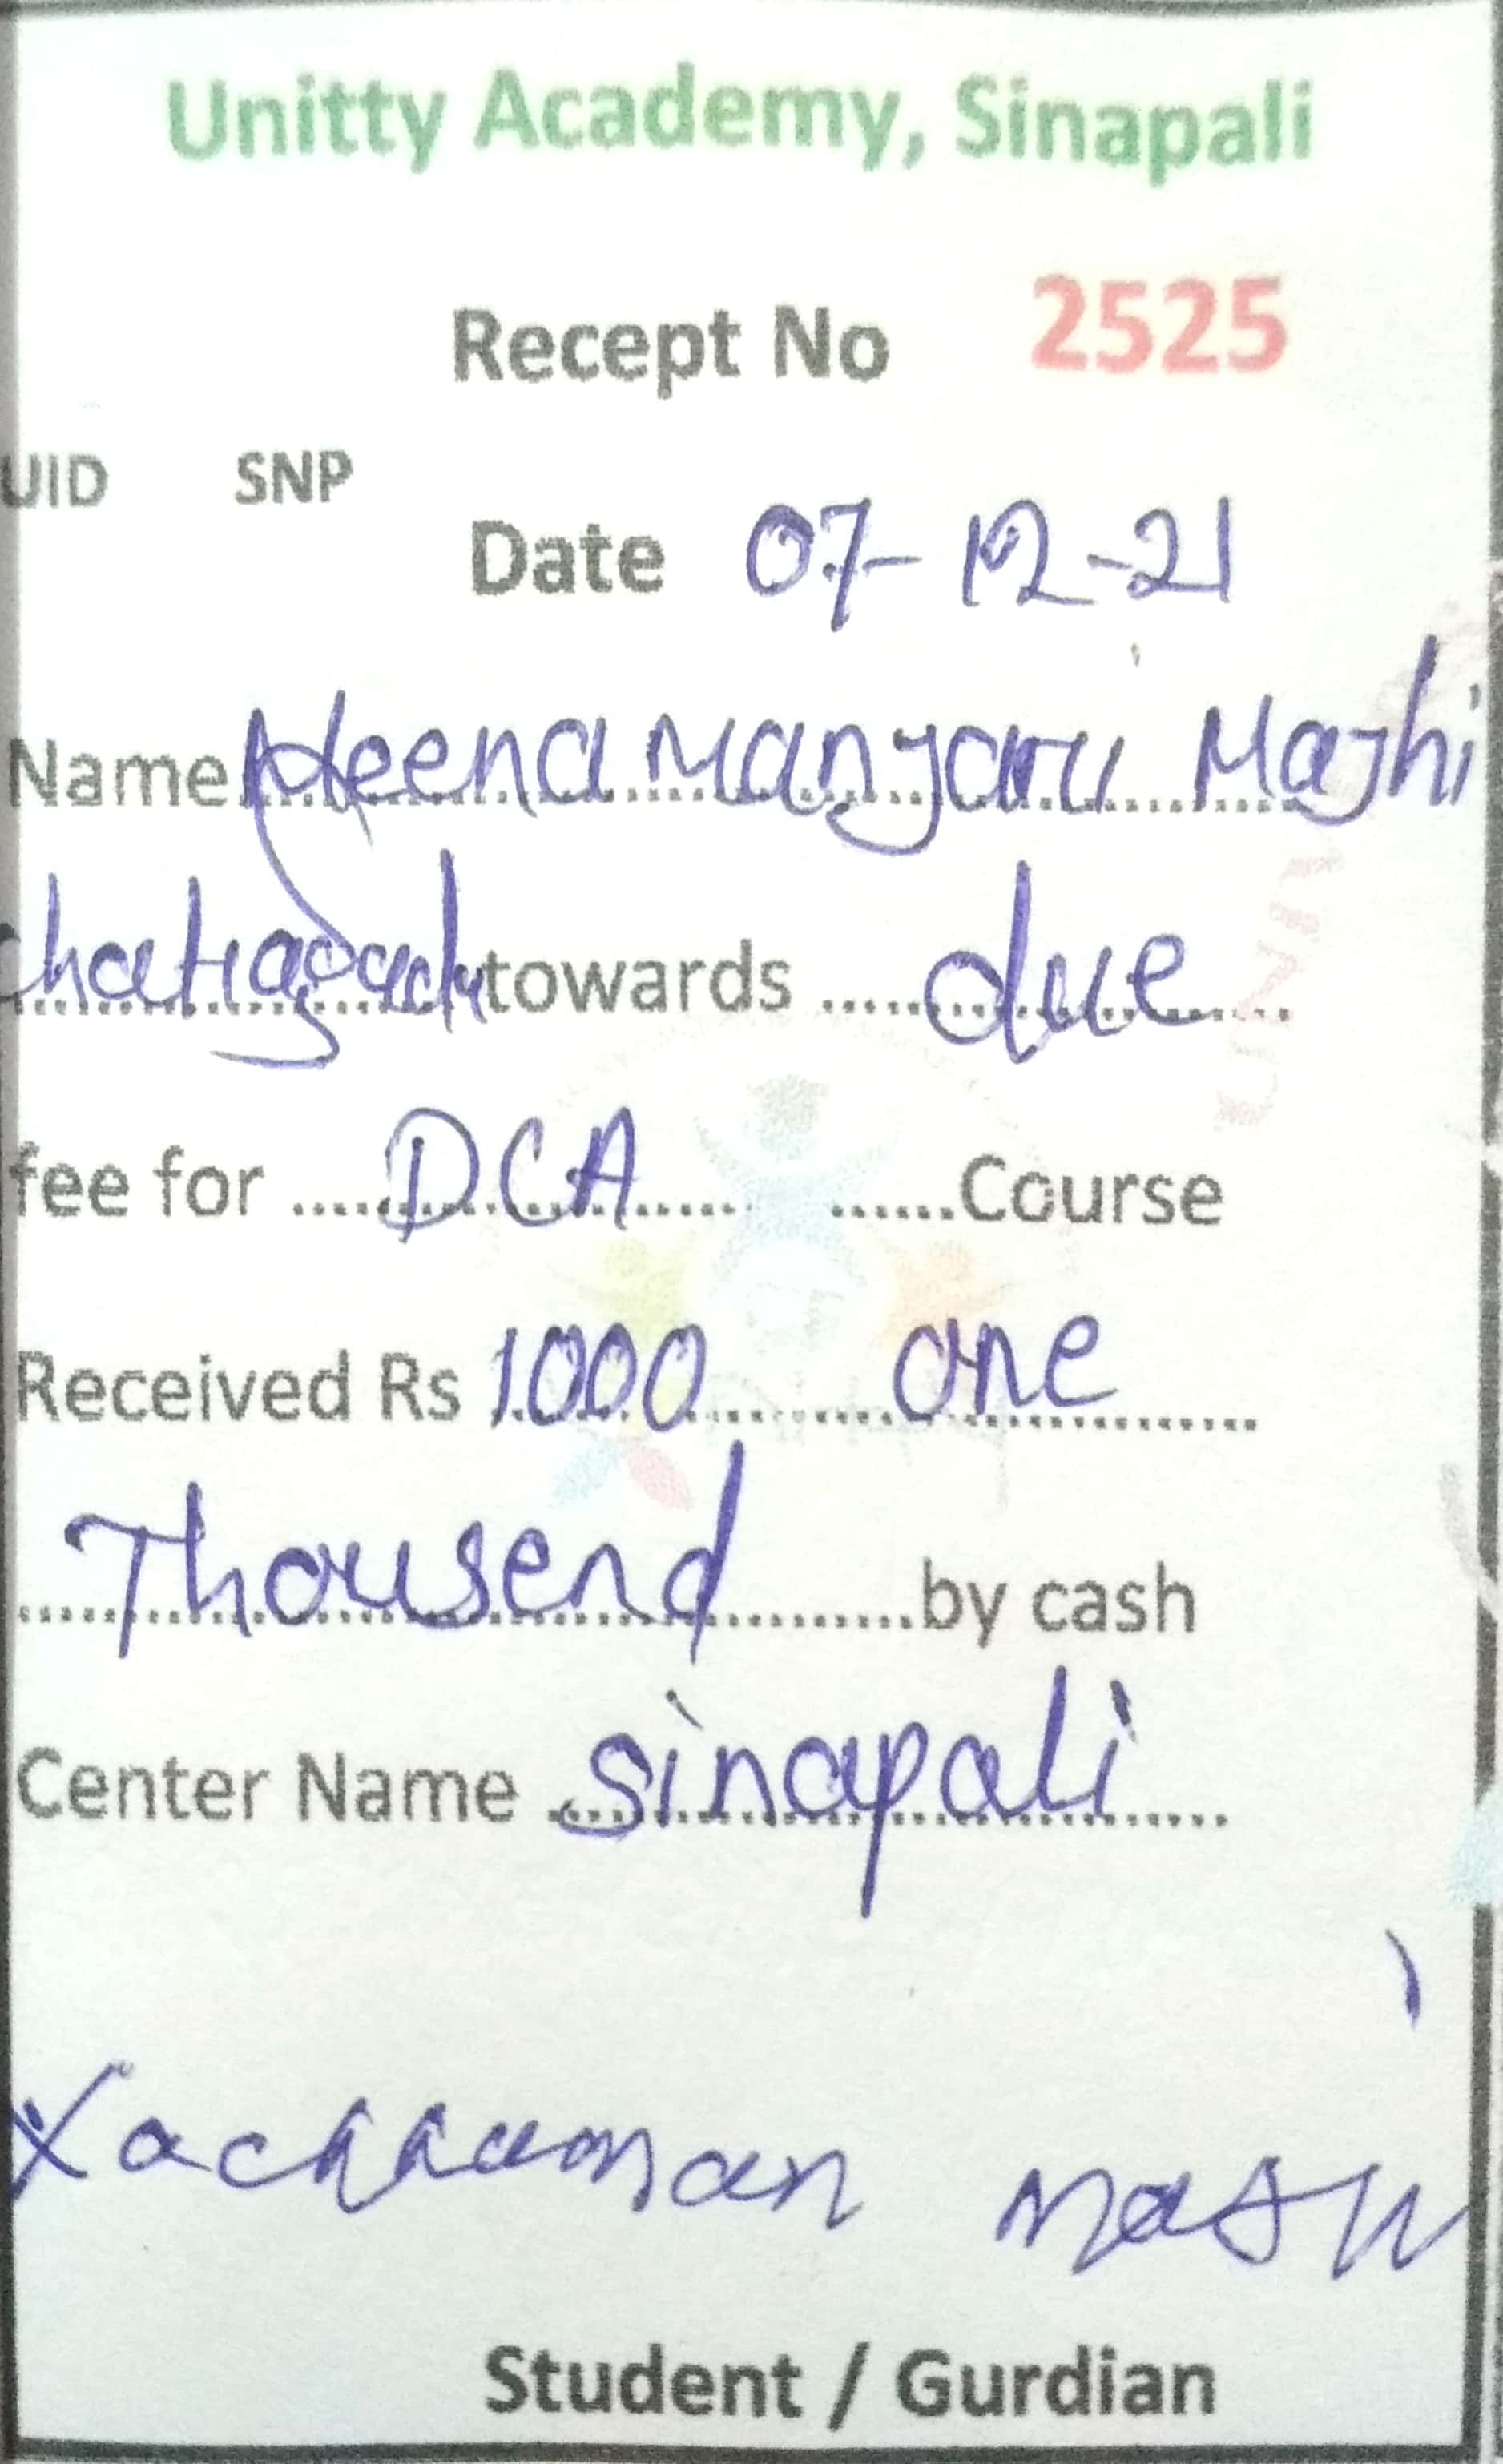 Unitty Academy, Sinapali
Recept No 2525
UID SNP
Date 07-12-21
Name Heena Manjari Majhi
towards due
fee for DCA Course
Received Rs 1000 one
Thousend by cash
Center Name sinapali
Student / Gurdian